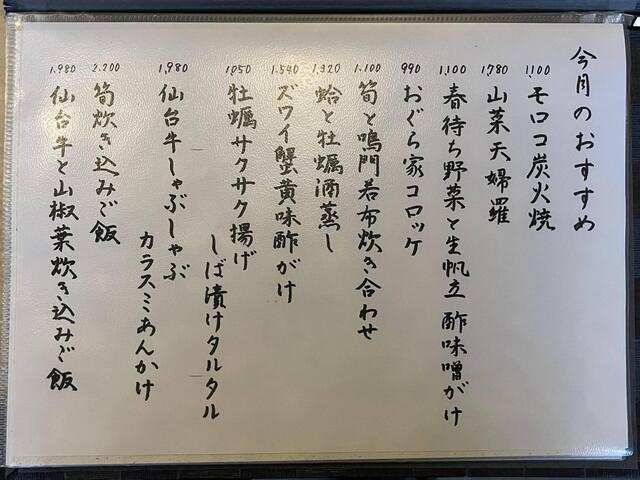 今月のおすすめ
1,100 モロコ炭火焼
1,780 山菜天婦羅
1,100 春待ち野菜と生帆立酢味噌がけ
990 おぐら家コロッケ
1,100 筍と鳴門若布炊き合わせ
1,320 蛤と牡蠣酒蒸し
1,540 ズワイ蟹黄味酢がけ
1,050 牡蠣サクサク揚げ
しば漬けタルタル
1,980 仙台牛しゃぶしゃぶ
カラスミあんかけ
2,200 筍炊き込みご飯
1,980 仙台牛と山椒葉炊き込みご飯